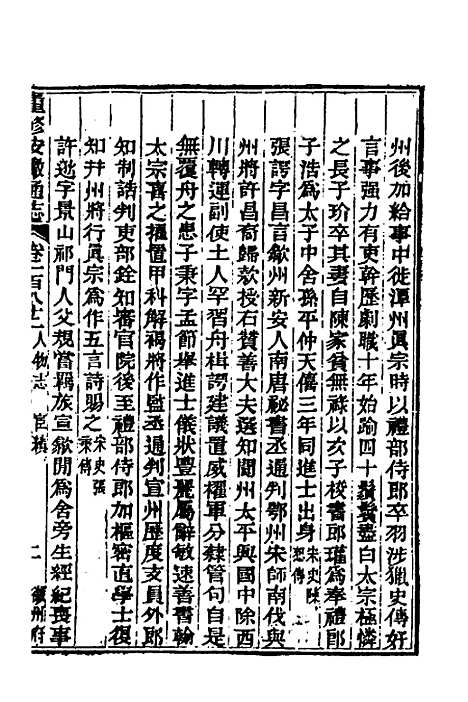 州後加給事中徙潭州眞宗時以禮部侍郎卒羽涉獵史傳好
言事强力有吏幹歷劇職十年始踰四十鬚髮盡白太宗極憐
之長子玠卒其妻自陳家貧無祿以次子校書郎瓘爲奉禮郎
子浩爲太子中舍孫平仲天僖三年同進士出身宋史陳恕傳
張諤字昌言歙州新安人南唐祕書丞通判鄂州宋師南伐與
州將許昌裔歸款授右贊善大夫選知閬州太平興國中除西
川轉運副使土人罕習舟楫諤建議置威櫂軍分隸管句自是
無覆舟之患子秉字孟節舉進士儀狀豐麗屬辭敏速善書翰
太宗喜之擢置甲科解褐將作監丞通判宣州歷度支員外郎
知制誥判吏部銓知審官院後至禮部侍郎加樞密直學士復
知并州將行眞宗爲作五言詩賜之宋史張秉傳
許逖字景山祁門人父規嘗羇旅宣歙閒爲舍旁生經紀喪事
重修安徽通志 卷一百八十二 人物志 宦績 二 徽州府